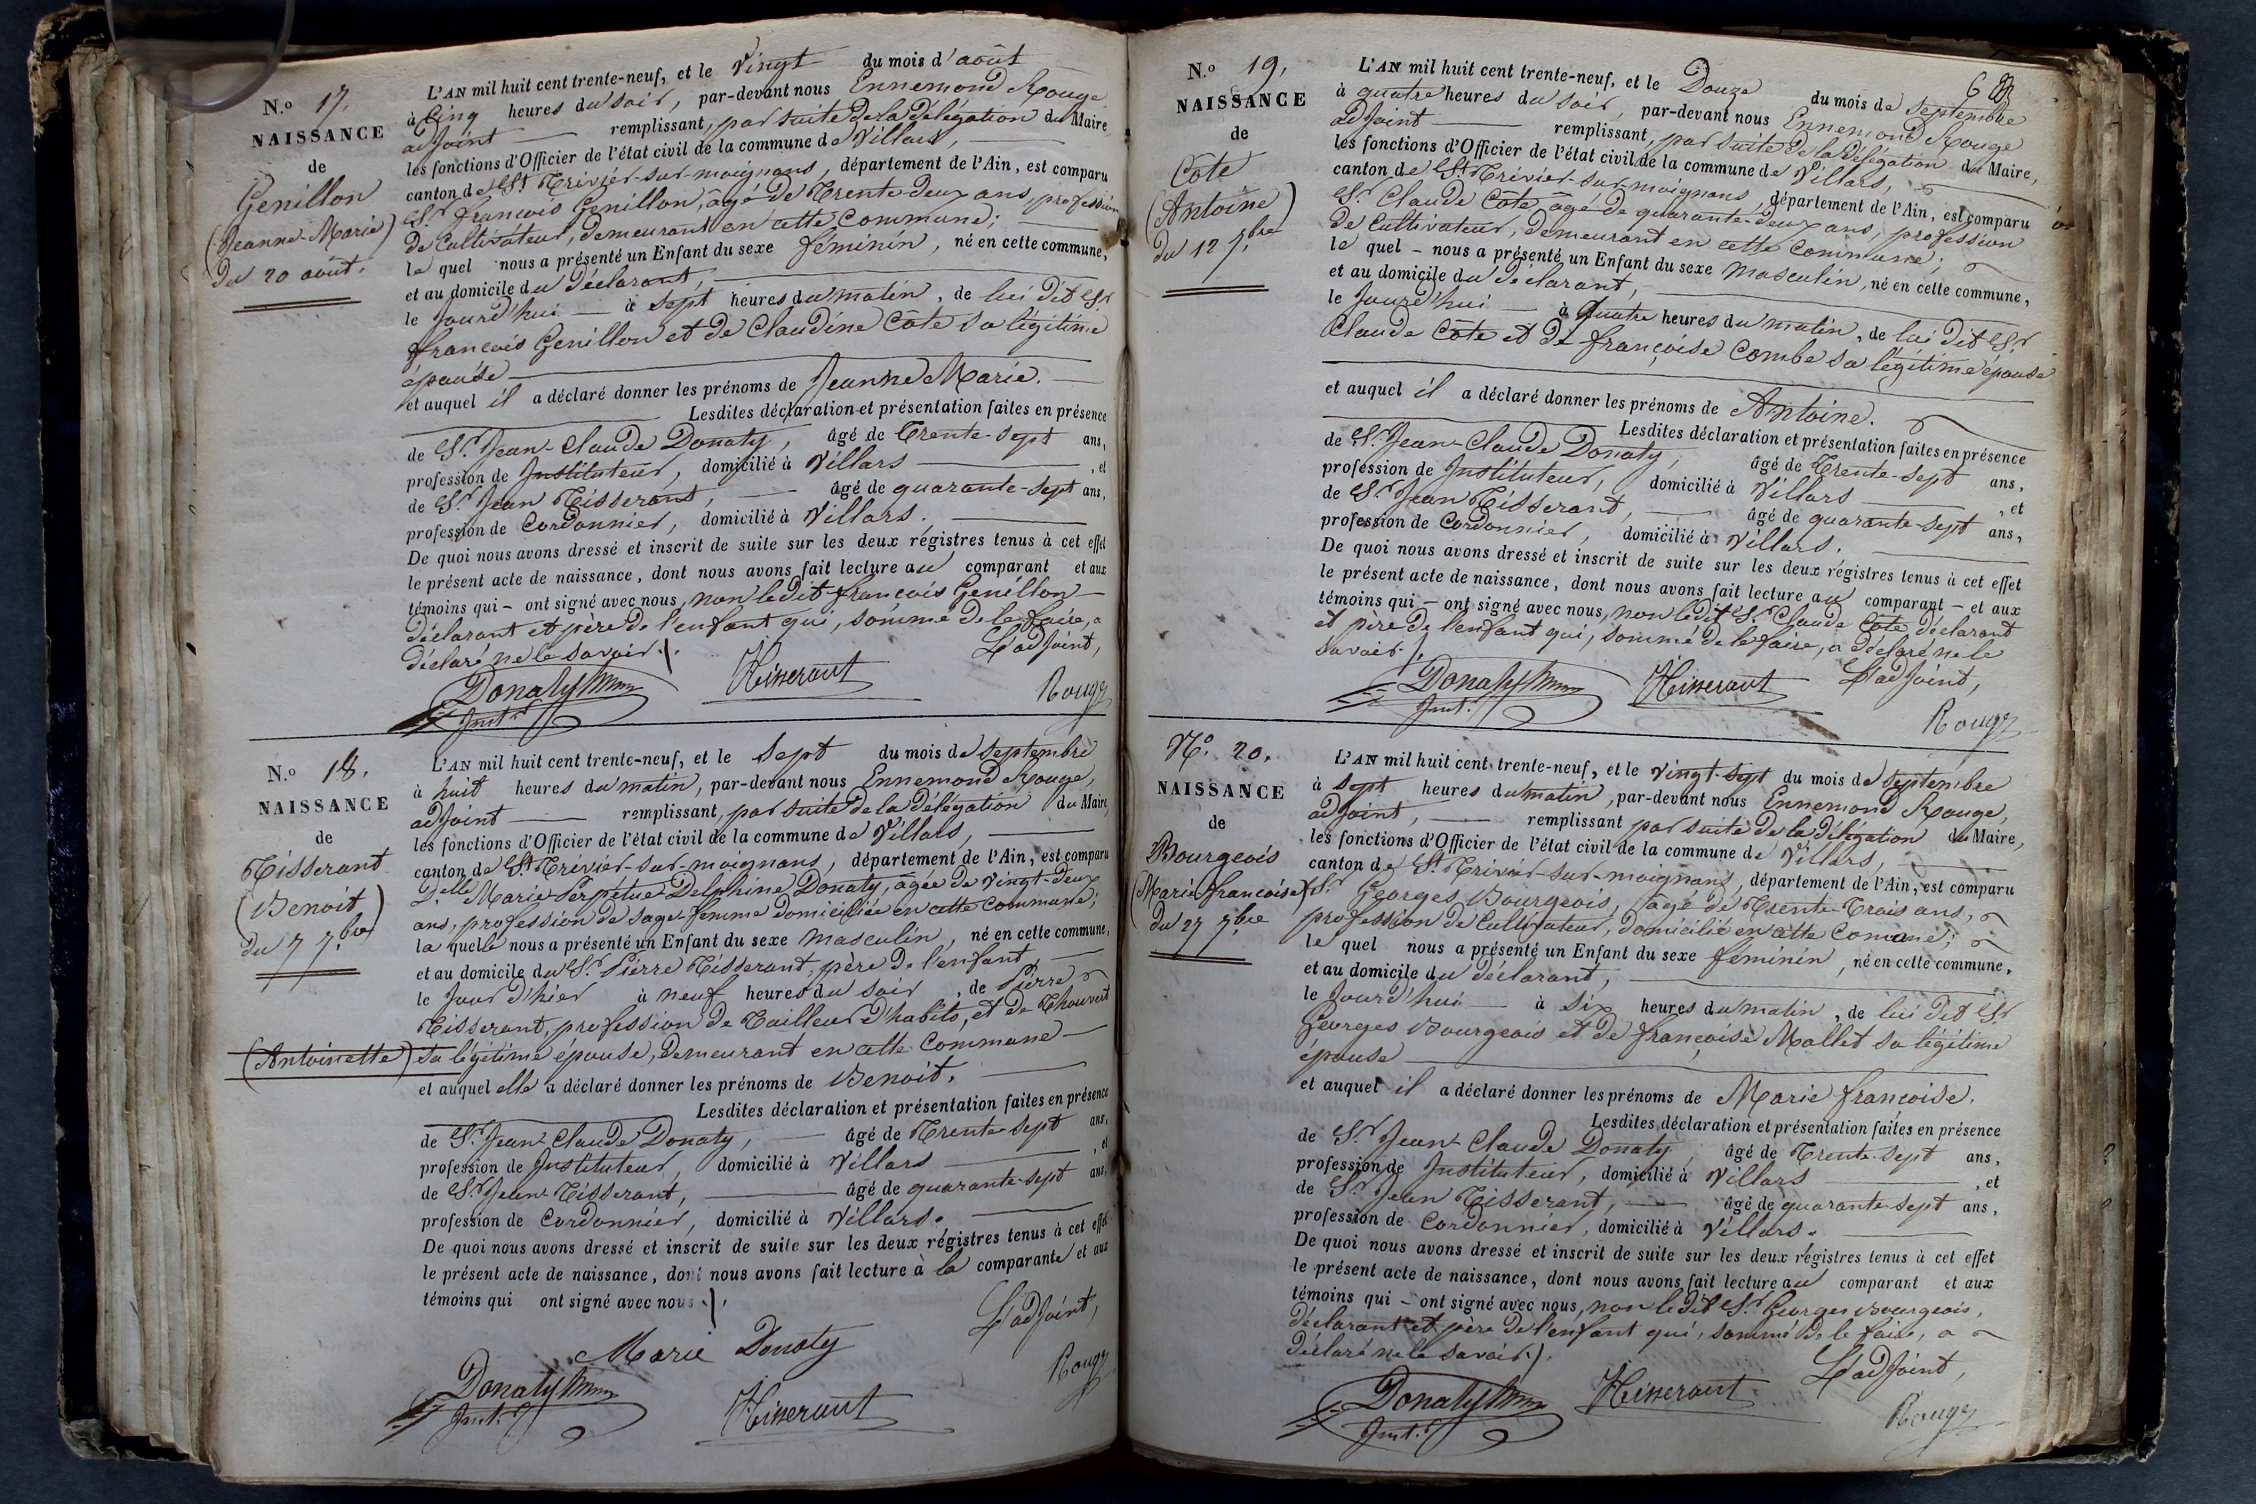 N.o 17.
NAISSANCE
de
Genillon
(Jeanne-Marie)
du 20 août.
L'AN mil huit cent trente-neuf, et le Vingt du mois d'août
à Cinq heures du soir, par-devant nous Ennemond Rouge
adjoint remplissant, par suite de la délégation du Maire
les fonctions d'Officier de l'état civil de la commune de Villars,
canton de St Trivier-sur-moignans, département de l'Ain, est comparu
Sr francois Genillon, âgé de Trente-deux ans, profession
de Cultivateur, demeurant en cette Commune;
le quel nous a présenté un Enfant du sexe féminin, né en cette commune,
et au domicile du déclarant,
le Jourd'hui à sept heures du matin, de lui dit Sr
francois Genillon et de Claudine Côte sa légitime
épouse
et auquel il a déclaré donner les prénoms de Jeanne Marie.
Lesdites déclaration et présentation faites en présence
de Sr Jean-Claude Donaty, âgé de Trente-sept ans,
profession de Instituteur, domicilié à Villars, et
de Sr Jean Tisserant, âgé de quarante-sept ans,
profession de Cordonnier, domicilié à Villars.
De quoi nous avons dressé et inscrit de suite sur les deux régistres tenus à cet effet
le présent acte de naissance, dont nous avons fait lecture au comparant et aux
témoins qui - ont signé avec nous, non ledit francois Genillon
déclarant et père de l'enfant qui, sommé de le faire, a
déclaré ne le savoir.
L'adjoint,
Donaty
Inst.r
Tisserant
Rouge
N.o 18.
NAISSANCE
de
Tisserant
(Benoit)
du 7 7.bre
(Antoinette)
L'AN mil huit cent trente-neuf, et le Sept du mois de septembre
à huit heures du matin, par-devant nous Ennemond Rouge,
adjoint remplissant, par suite de la délégation du Maire,
les fonctions d'Officier de l'état civil de la commune de Villars,
canton de St Trivier-sur-moignans, département de l'Ain, est comparu
D.elle Marie Perpétue Delphine Donaty, âgée de vingt-deux
ans, profession de sage-femme domiciliée en cette commune;
la quelle nous a présenté un Enfant du sexe masculin, né en cette commune,
et au domicile du Sr. Pierre Tisserant, père de l'enfant,
le Jour d'hier à neuf heures du soir, de Pierre
Tisserant, profession de Tailleur d'habits, et de Thouvert
sa légitime épouse, demeurant en cette Commune
et auquel elle a déclaré donner les prénoms de Benoit.
Lesdites déclaration et présentation faites en présence
de Sr Jean-Claude Donaty, âgé de Trente-sept ans,
profession de Instituteur, domicilié à Villars, et
de Sr Jean Tisserant, âgé de quarante-sept ans,
profession de Cordonnier, domicilié à Villars.
De quoi nous avons dressé et inscrit de suite sur les deux régistres tenus à cet effet
le présent acte de naissance, dont nous avons fait lecture à la comparante et aux
témoins qui ont signé avec nous.
L'adjoint,
Marie Donaty
Donaty
Inst.
Tisserant
Rouge
N.o 19.
NAISSANCE
de
Côte
(Antoine)
du 12 7.bre
L'AN mil huit cent trente-neuf, et le Douze du mois de septembre
à quatre heures du soir, par-devant nous Ennemond Rouge
adjoint remplissant, par suite de la délégation du Maire,
les fonctions d'Officier de l'état civil de la commune de Villars,
canton de St Trivier-sur-moignans, département de l'Ain, est comparu
Sr Claude Côte, âgé de quarante-deux ans, profession
de Cultivateur, demeurant en cette Commune;
le quel - nous a présenté un Enfant du sexe masculin, né en cette commune,
et au domicile du déclarant,
le Jourd'hui à Quatre heures du matin, de lui dit Sr
Claude Côte et de françoise Combe sa légitime épouse
et auquel il a déclaré donner les prénoms de Antoine.
Lesdites déclaration et présentation faites en présence
de Sr Jean-Claude Donaty, âgé de Trente-sept ans,
profession de Instituteur, domicilié à Villars, et
de Sr Jean Tisserant, âgé de quarante-sept ans,
profession de Cordonnier, domicilié à Villars.
De quoi nous avons dressé et inscrit de suite sur les deux régistres tenus à cet effet
le présent acte de naissance, dont nous avons fait lecture au comparant - et aux
témoins qui - ont signé avec nous, non ledit Sr Claude Côte déclarant
et père de l'enfant qui, sommé de le faire, a déclaré ne le
savoir.
L'adjoint,
Donaty
Inst.
Tisserant
Rouge
N.o 20.
NAISSANCE
de
Bourgeois
(Marie francoise)
du 27 7.bre
L'AN mil huit cent trente-neuf, et le vingt-sept du mois de septembre
à sept heures du matin, par-devant nous Ennemond Rouge,
adjoint, remplissant par suite de la délégation du Maire,
les fonctions d'Officier de l'état civil de la commune de Villars,
canton de St Trivier-sur-moignans, département de l'Ain, est comparu
Sr Georges Bourgeois, âgé de Trente-Trois ans,
profession de Cultivateur, domicilié en cette Comune;
le quel nous a présenté un Enfant du sexe féminin, né en cette commune,
et au domicile du déclarant,
le Jourd'hui à six heures du matin, de lui dit Sr
Georges Bourgeois et de françoise Mallet sa légitime
épouse
et auquel il a déclaré donner les prénoms de Marie francoise.
Lesdites déclaration et présentation faites en présence
de Sr Jean-Claude Donaty, âgé de Trente-sept ans,
profession de Instituteur, domicilié à Villars, et
de Sr Jean Tisserant, âgé de quarante-sept ans,
profession de Cordonnier, domicilié à Villars.
De quoi nous avons dressé et inscrit de suite sur les deux régistres tenus à cet effet
le présent acte de naissance, dont nous avons fait lecture au comparant et aux
témoins qui - ont signé avec nous, non ledit Sr Georges Bourgeois,
déclarant et père de l'enfant qui, sommé de le faire, a
déclaré ne le savoir.
L'adjoint,
Donaty
Inst.
Tisserant
Rouge